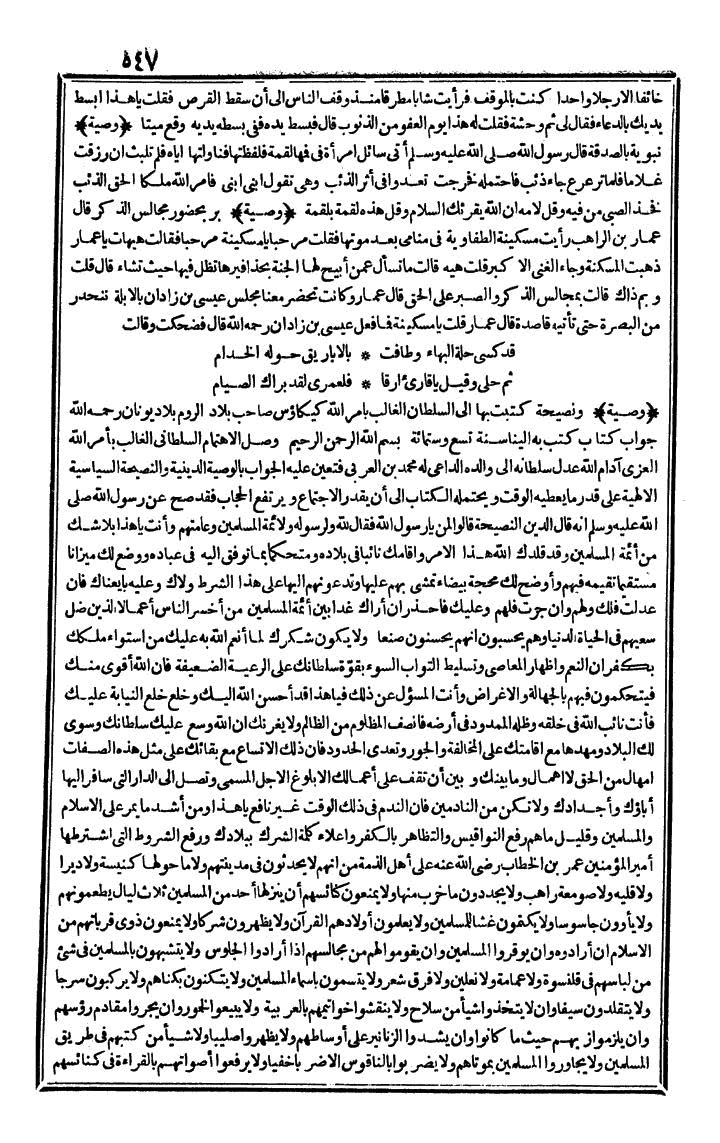 ٥٤٧
خائفا الا رجلا واحدا كنت بالموقف فرأيت شابا مطرقا منذ وقف الناس الى أن سقط القرص فقلت يا هذا ابسط
يديك بالدعاء فقال لى ثم وحشة فقلت له هذا يوم العفو من الذنوب قال فبسط يده ففى بسطه يديه وقع ميتا ﴿وصية﴾
نبوية بالصدقة قال رسول الله صلى الله عليه وسلم أتى سائل امرأة فى فها لقمة فلفظتها فناولتها اياه فلم تلبث ان رزقت
غلاما فلما ترعرع جاء ذئب فاحتمله فخرجت تعدو فى أثر الذئب وهى تقول ابنى ابنى فامر الله ملكا الحق الذئب
فخذ الصبى من فيه وقل لامه ان الله يقرئك السلام وقل هذه لقمة بلقمة ﴿وصية﴾ بر بحضور مجالس الذكر قال
عمار بن الراهب رأيت مسكينة الطفاوية فى منامى بعد موتها فقلت مرحبا يا مسكينة مرحبا فقالت هيهات يا عمار
ذهبت المسكنة وجاء الغنى الاكبر قلت هيه قالت ما تسأل عمن أبيح لها الجنة بحذافيرها تظل فيها حيث تشاء قال قلت
وبم ذاك قالت بمجالس الذكر والصبر على الحق قال عمار وكانت تحضر معنا مجلس عيسى بن زادان بالابلة تنحدر
من البصرة حتى تأتيه قاصدة قال عمار قلت يا مسكينة فما فعل عيسى بن زادان رحمه الله قال فضحكت وقالت
قد كسى حلة البهاء وطافت * بالاباريق حوله الخدام
ثم حلى وقيل يا قارئ ارقا * فلعمرى لقد براك الصيام
﴿وصية﴾ ونصيحة كتبت بها الى السلطان الغالب بامر الله كيكاؤس صاحب بلاد الروم بلاد يونان رحمه الله
جواب كتاب كتب به الينا سنة تسع وستمائة بسم الله الرحمن الرحيم وصل الاهتمام السلطانى الغالب بأمر الله
العزى أدام الله عدل سلطانه الى والده الداعى له محمد بن العربى فتعين عليه الجواب بالوصية الدينية والنصيحة السياسية
الالهية على قدر ما يعطيه الوقت ويحتمله الكتاب الى أن يقدر الاجتماع ويرتفع الحجاب فقد صح عن رسول الله صلى
الله عليه وسلم انه قال الدين النصيحة قالوا لمن يا رسول الله فقال لله ولرسوله ولائمة المسلمين وعامتهم وأنت يا هذا بلا شك
من أئمة المسلمين وقد قلدك الله هذا الامر واقامك نائبا فى بلاده ومتحكما بما توفق اليه فى عباده ووضع لك ميزانا
مستقيما تقيمه فيهم وأوضح لك محجة بيضاء تمشى بهم عليها وتدعونهم اليها على هذا الشرط ولاك وعليه بايعناك فان
عدلت فلك ولهم وان جرت فلهم وعليك فاحذر ان أراك غدا بين أئمة المسلمين من أخسر الناس أعمالا الذين ضل
سعيهم فى الحياة الدنيا وهم يحسبون انهم يحسنون صنعا ولا يكون شكرك لما أنعم الله به عليك من استواء ملكك
بكفران النعم واظهار المعاصى وتسليط النواب السوء بقوة سلطانك على الرعية الضعيفة فان الله أقوى منك
فيتحكمون فيهم بالجهالة والاغراض وأنت المسؤل عن ذلك فيا هذا قد أحسن الله اليك وخلع خلع النيابة عليك
فأنت نائب الله فى خلقه وظله الممدود فى أرضه فانصف المظلوم من الظالم ولا يغرنك ان الله وسع عليك سلطانك وسوى
لك البلاد ومهدها مع اقامتك على المخالفة والجور وتعدى الحدود فان ذلك الاتساع مع بقائك على مثل هذه الصفات
امهال من الحق لا اهمال وما بينك وبين أن تقف على أعمالك الا بلوغ الاجل المسمى وتصل الى الدار التى سافر اليها
أباؤك وأجدادك ولا تكن من النادمين فان الندم فى ذلك الوقت غير نافع يا هذا ومن أشد ما يمر على الاسلام
والمسلمين وقليل ما هم رفع النواقيس والتظاهر بالكفر واعلاء كلمة الشرك ببلادك ورفع الشروط التى اشترطها
أمير المؤمنين عمر بن الخطاب رضى الله عنه على أهل الذمة من انهم لا يحدثون فى مدينتهم ولا ما حولها كنيسة ولا ديرا
ولا قلية ولا صومعة راهب ولا يجددون ما خرب منها ولا يمنعون كنائسهم أن ينزلها أحد من المسلمين ثلاث ليال يطعمونهم
ولا يأوون جاسوسا ولا يكتمون غشا للمسلمين ولا يعلمون أولادهم القرآن ولا يظهرون شركا ولا يمنعون ذوى قرباتهم من
الاسلام ان أرادوه وان يوقروا المسلمين وان يقوموا لهم من مجالسهم اذا أرادوا الجلوس ولا يتشبهون بالمسلمين فى شئ
من لباسهم فى قلنسوة ولا عمامة ولا نعلين ولا فرق شعر ولا يتسمون باسماء المسلمين ولا يتكنون بكناهم ولا يركبون سرجا
ولا يتقلدون سيفا وان لا يتخذوا شيأ من سلاح ولا ينقشوا خواتيمهم بالعربية ولا يبيعوا الخمور وان يجروا مقادم رؤسهم
وان يلزموا زيهم حيث ما كانوا وان يشدوا الزنانير على أوساطهم ولا يظهروا صليبا ولا شيأ من كتبهم فى طريق
المسلمين ولا يجاوروا المسلمين بموتاهم ولا يضربوا بالناقوس الا ضربا خفيا ولا يرفعوا أصواتهم بالقراءة فى كنائسهم